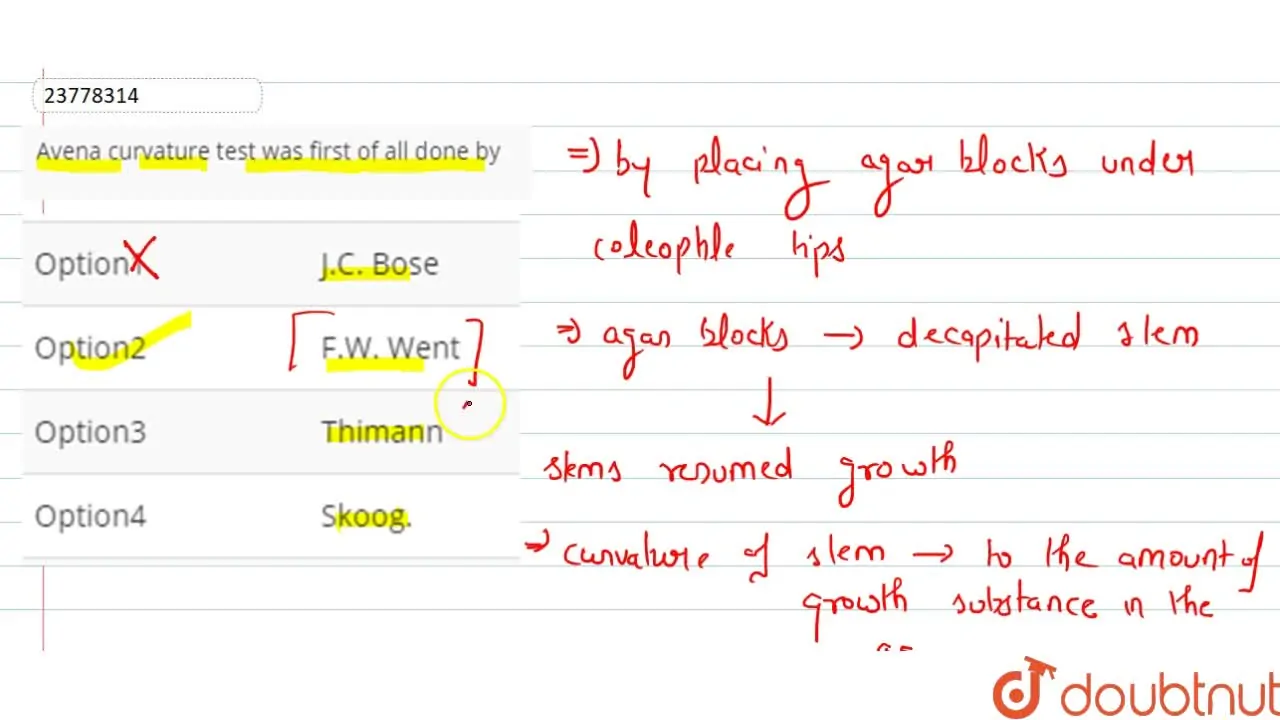 23778314
Avena curvature test was first of all done by
Option1 J.C. Bose
Option2 F.W. Went
Option3 Thimann
Option4 Skoog.
=) by placing agar blocks under
coleophle tips
=) agar blocks → decapitated stem
↓
stems resumed growth
=) curvature of stem → to the amount of
growth substance in the
doubtnut